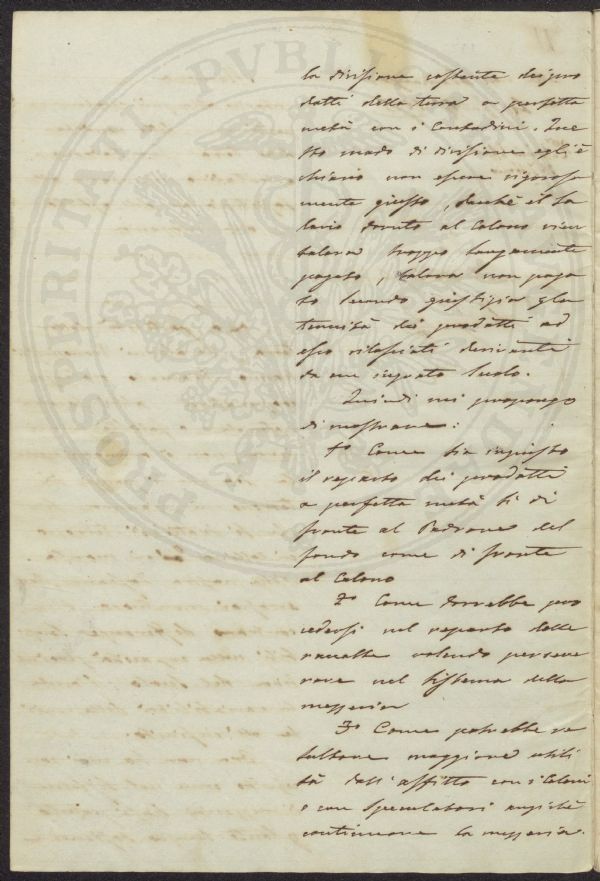 la divisione costante dei pro
dotti della terra a perfetta
metà con i Contadini. Que
sto modo di divisione egli è
chiaro non essere rigorosa
mente giusto, dacchè il Sa
lario dovuto al Colono vien
talora troppo largamente
pagato, talora non paga
to secondo giustizia
tenuità dei prodotti ad
esso rilasciati derivanti
da un ingrato suolo.
Quindi mi propongo
di mostrare:
1o Come sia ingiusto
il reparto dei prodotti
a perfetta metà sì di
fronte al Padrone del
fondo come di fronte
al Colono
2o Come dovrebbe pro
cedersi nel reparto delle
raccolte volendo perseve
rare nel sistema della
mezzeria
3o Come potrebbe re
sultare maggiore utili
tà dall'affitto con i Coloni
e con Speculatori anzichè
continuare la mezzeria.
PROSPERITATI PVBLICAE